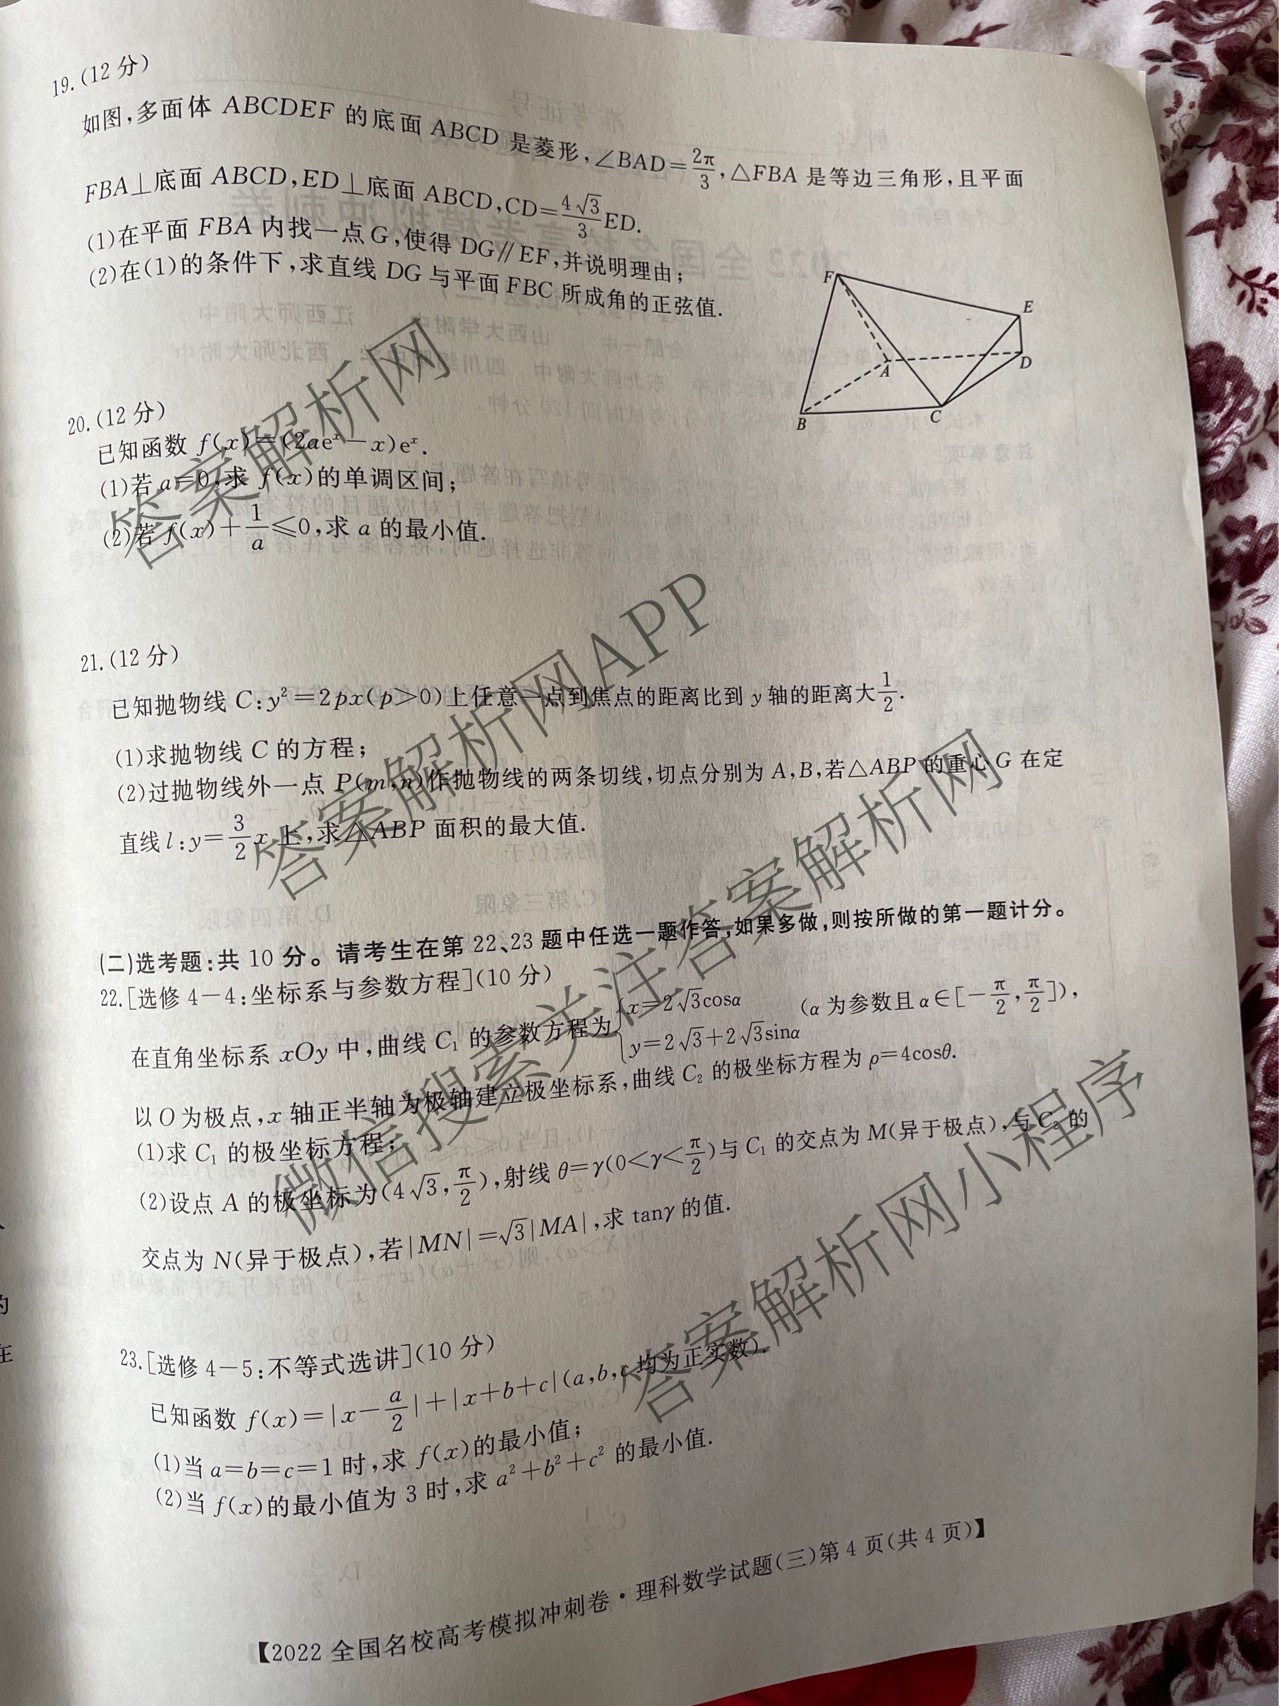 19.(12分)
如图,多面体 ABCDEF 的底面 ABCD 是菱形,∠BAD=2π/3,△FBA 是等边三角形,且平面
FBA⊥底面 ABCD,ED⊥底面 ABCD,CD=4√3/3 ED.
(1)在平面 FBA 内找一点 G,使得 DG∥EF,并说明理由;
(2)在(1)的条件下,求直线 DG 与平面 FBC 所成角的正弦值.
F
E
A
D
B
C
20.(12分)
已知函数 f(x)=(2ae^x-x)e^x.
(1)若 a=0,求 f(x)的单调区间;
(2)若 f(x)+1/a≤0,求 a 的最小值.
21.(12分)
已知抛物线 C:y²=2px(p>0)上任意一点到焦点的距离比到 y 轴的距离大 1/2.
(1)求抛物线 C 的方程;
(2)过抛物线外一点 P(m,n)作抛物线的两条切线,切点分别为 A,B,若△ABP 的重心 G 在定
直线 l:y=3/2 x 上,求△ABP 面积的最大值.
(二)选考题:共 10 分。请考生在第 22、23 题中任选一题作答,如果多做,则按所做的第一题计分。
22.[选修 4-4:坐标系与参数方程](10分)
在直角坐标系 xOy 中,曲线 C₁ 的参数方程为{x=2√3cosα y=2√3+2√3sinα (α 为参数且 α∈[-π/2,π/2]),
以 O 为极点,x 轴正半轴为极轴建立极坐标系,曲线 C₂ 的极坐标方程为 ρ=4cosθ.
(1)求 C₁ 的极坐标方程;
(2)设点 A 的极坐标为(4√3,π/2),射线 θ=γ(0<γ<π/2)与 C₁ 的交点为 M(异于极点),与 C₂ 的
交点为 N(异于极点),若|MN|=√3|MA|,求 tanγ 的值.
23.[选修 4-5:不等式选讲](10分)
已知函数 f(x)=|x-a/2|+|x+b+c|(a,b,c 均为正实数).
(1)当 a=b=c=1 时,求 f(x)的最小值;
(2)当 f(x)的最小值为 3 时,求 a²+b²+c² 的最小值.
【2022 全国名校高考模拟冲刺卷·理科数学试题(三)第 4 页(共 4 页)】
答案解析网
答案解析网APP
微信搜索关注答案解析网
答案解析网小程序